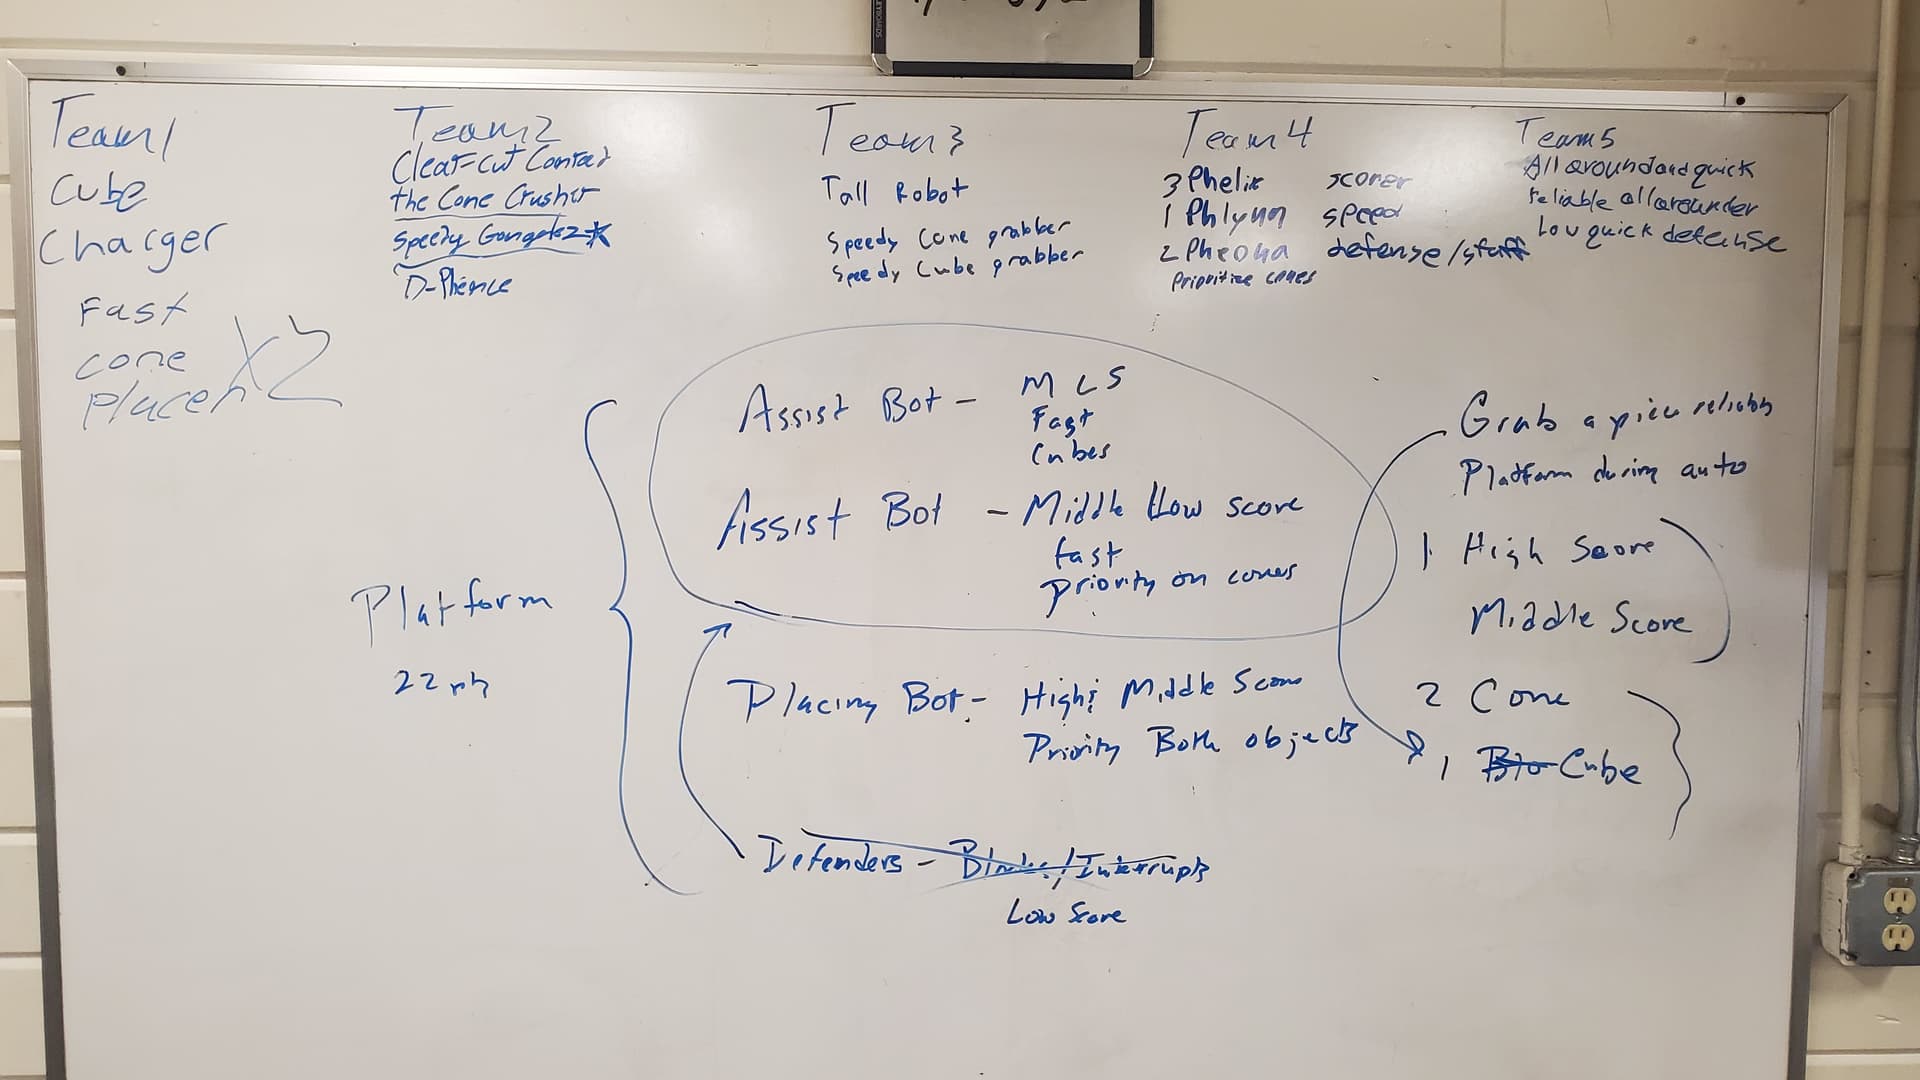 Team 1
Cube
Charger
Fast
cone X2
placer
Team 2
Clear-cut
the Cone Crusher
Speedy
D-Phence
Team 3
Tall Robot
Speedy Cone grabber
Speedy Cube grabber
Team 4
3 Phelix scorer
1 Phlynn speed
2 Pheona defense/stuff
Prioritize cones
Team 5
All around and quick
Reliable all arounder
Low quick defense
Assist Bot - MLS
Fast
Cubes
Assist Bot - Middle & low score
fast
priority on cones
Platform
22
Placing Bot - High & Middle Score
Priority Both objects
Defenders - Interrupts
Low Score
Grab a piece reliably
Platform during auto
1 High Score
Middle Score
2 Cone
1 Cube